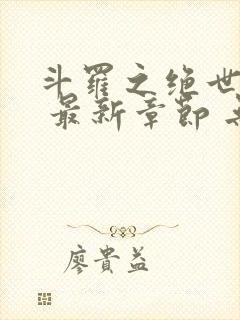 斗羅之绝世
最新章節
廖貴益